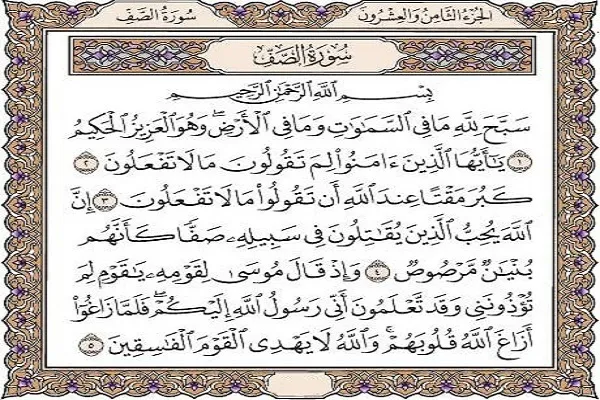 سُورَةُ الصَّفِّ
الجُزْءُ الثَّامِنُ وَالعِشْرُونَ
سُورَةُ الصَّفِّ
بِسْمِ اللَّهِ الرَّحْمَٰنِ الرَّحِيمِ
سَبَّحَ لِلَّهِ مَا فِي السَّمَٰوَٰتِ وَمَا فِي الْأَرْضِ ۖ وَهُوَ الْعَزِيزُ الْحَكِيمُ
١ يَٰٓأَيُّهَا الَّذِينَ ءَامَنُوا۟ لِمَ تَقُولُونَ مَا لَا تَفْعَلُونَ ٢
كَبُرَ مَقْتًا عِندَ اللَّهِ أَن تَقُولُوا۟ مَا لَا تَفْعَلُونَ ٣ إِنَّ
اللَّهَ يُحِبُّ الَّذِينَ يُقَٰتِلُونَ فِي سَبِيلِهِۦ صَفًّا كَأَنَّهُم
بُنْيَٰنٌ مَّرْصُوصٌ ٤ وَإِذْ قَالَ مُوسَىٰ لِقَوْمِهِۦ يَٰقَوْمِ لِمَ
تُؤْذُونَنِي وَقَد تَّعْلَمُونَ أَنِّي رَسُولُ اللَّهِ إِلَيْكُمْ ۖ فَلَمَّا زَاغُوٓا۟
أَزَاغَ اللَّهُ قُلُوبَهُمْ ۚ وَاللَّهُ لَا يَهْدِي الْقَوْمَ الْفَٰسِقِينَ ٥